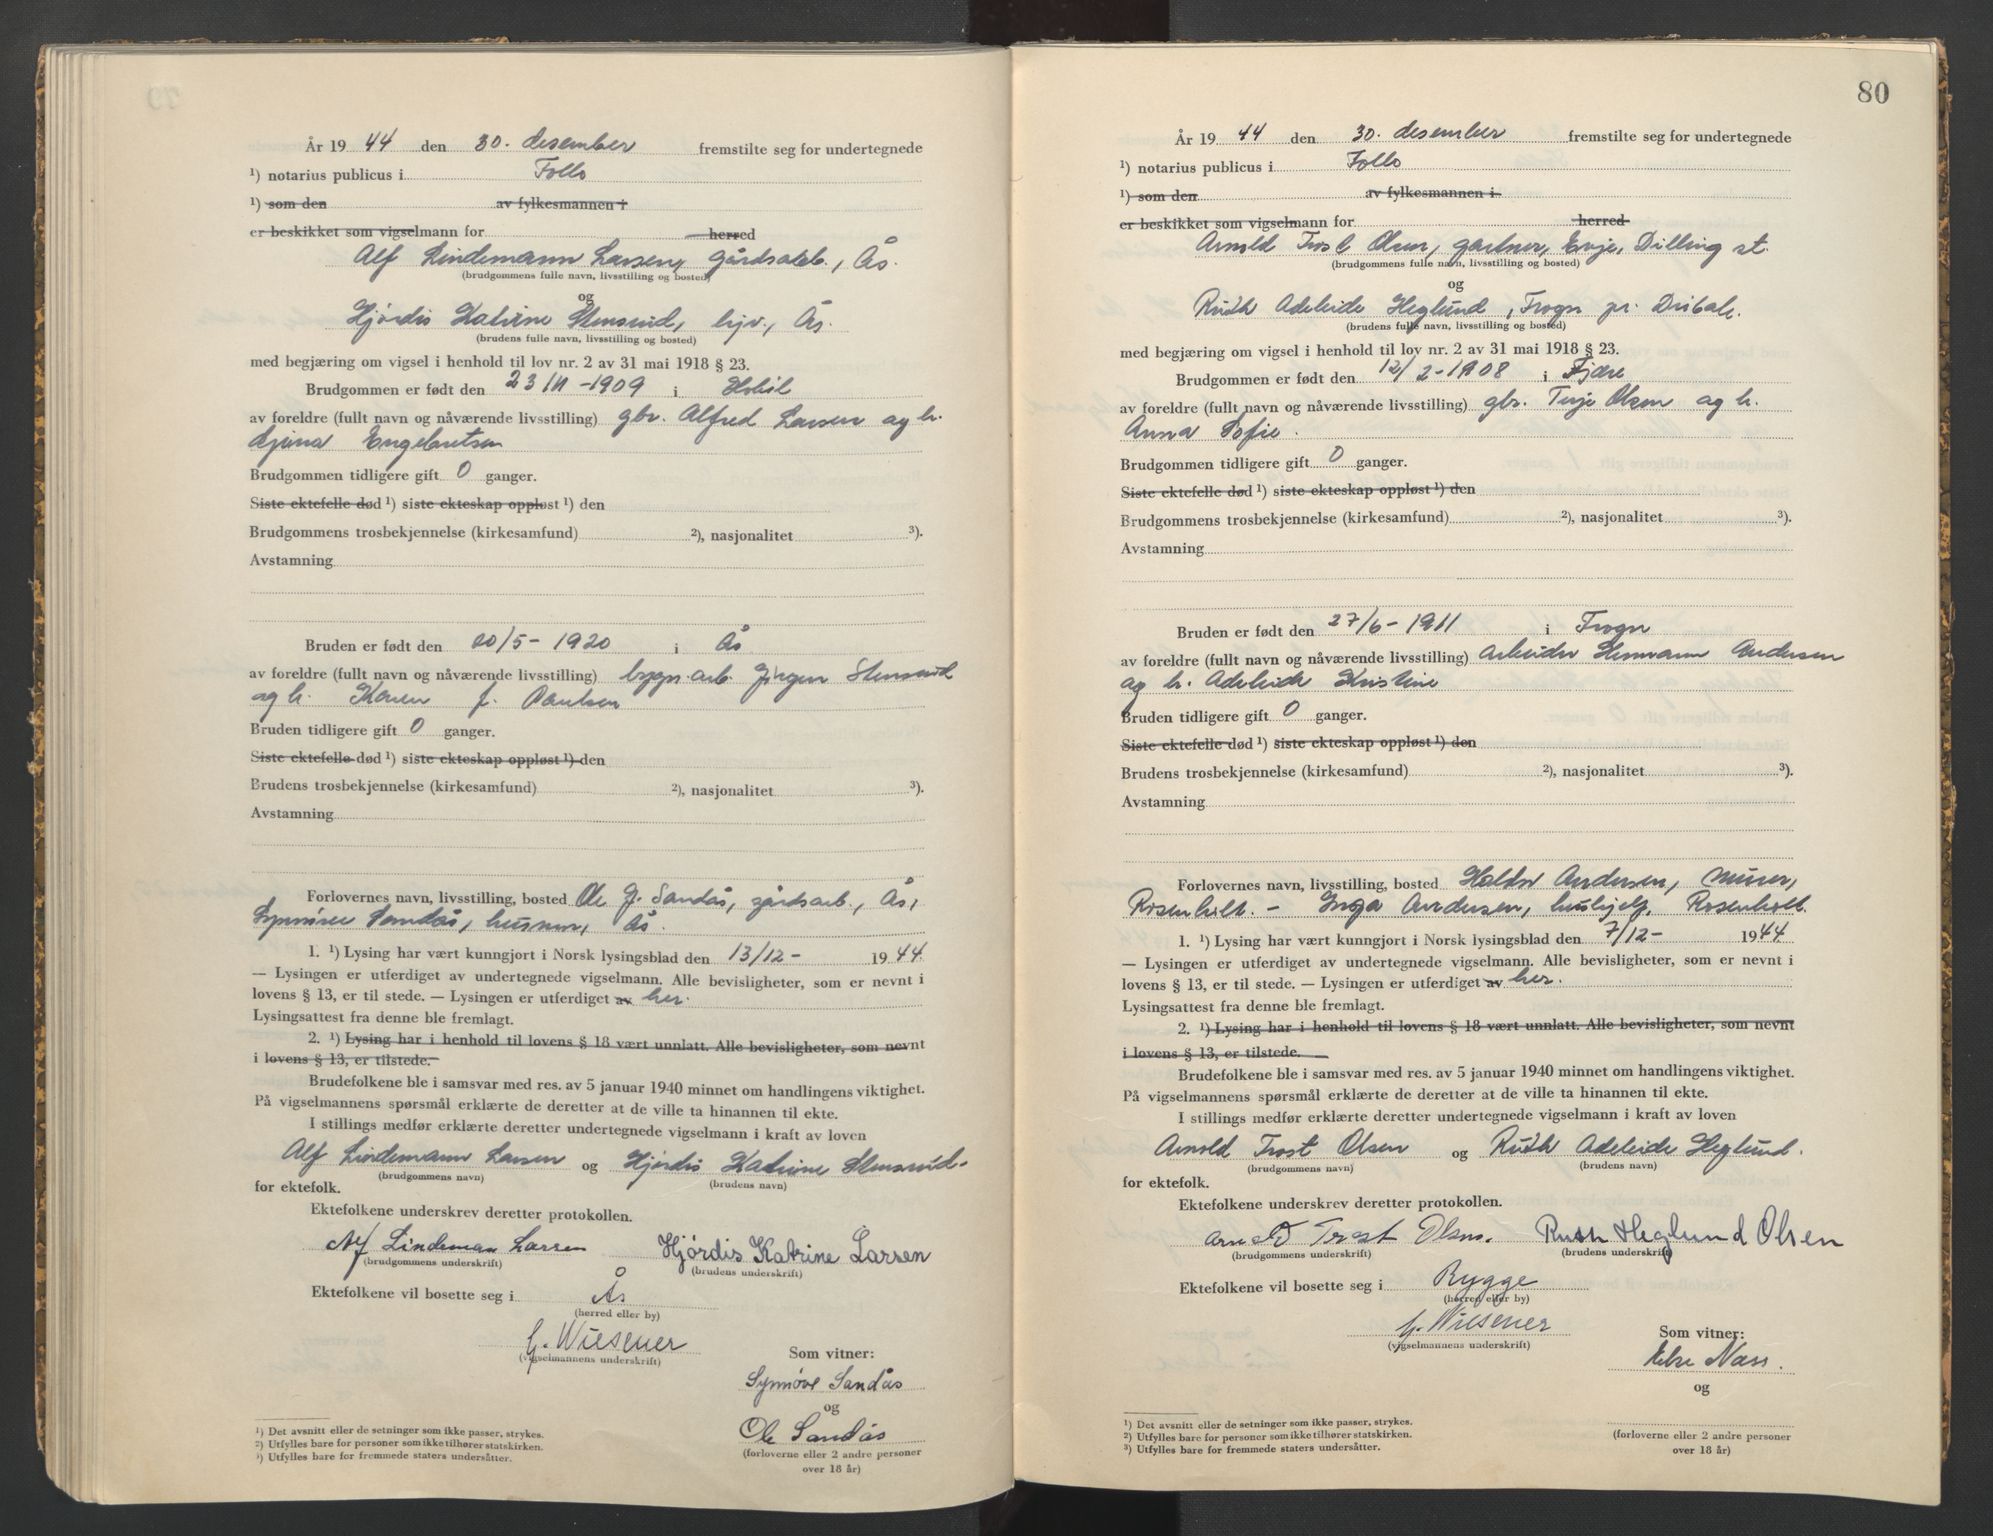 År 19 44 den 30. desember fremstilte seg for undertegnede
¹) notarius publicus i Follo
¹) som den av fylkesmannen i
er beskikket som vigselmann for herred
Alf Lindemann Larsen, gårdsarb., Ås.
(brudgommens fulle navn, livsstilling og bosted)
og
Hjørdis Katrine Stensrud, hjv., Ås.
(brudens fulle navn, livsstilling og bosted)
med begjæring om vigsel i henhold til lov nr. 2 av 31 mai 1918 § 23.
Brudgommen er født den 23/11-1909 i Hobøl
av foreldre (fullt navn og nåværende livsstilling) gbr. Alfred Larsen og h.
Engebretsen
Brudgommen tidligere gift 0 ganger.
Siste ektefelle død ¹) siste ekteskap oppløst ¹) den
Brudgommens trosbekjennelse (kirkesamfund) ²), nasjonalitet ³).
Avstamning
Bruden er født den 20/5-1920 i Ås
av foreldre (fullt navn og nåværende livsstilling) bygn.arb. Jørgen Stensrud
og h. Karen f. Paulsen
Bruden tidligere gift 0 ganger.
Siste ektefelle død ¹) siste ekteskap oppløst ¹) den
Brudens trosbekjennelse (kirkesamfund) ²), nasjonalitet ³).
Avstamning
Forlovernes navn, livsstilling, bosted Ole J. Sandås, gårdsarb., Ås,
Synnøve Sandås, husmor, Ås.
1. ¹) Lysing har vært kunngjort i Norsk lysingsblad den 13/12- 1944
— Lysingen er utferdiget av undertegnede vigselmann. Alle bevisligheter, som er nevnt i
lovens § 13, er til stede. — Lysingen er utferdiget av her.
Lysingsattest fra denne ble fremlagt.
2. ¹) Lysing har i henhold til lovens § 18 vært unnlatt. Alle bevisligheter, som nevnt
i lovens § 13, er tilstede.
Brudefolkene ble i samsvar med res. av 5 januar 1940 minnet om handlingens viktighet.
På vigselmannens spørsmål erklærte de deretter at de ville ta hinannen til ekte.
I stillings medfør erklærte deretter undertegnede vigselmann i kraft av loven
Alf Lindemann Larsen og Hjørdis Katrine Stensrud.
(brudgommens navn) (brudens navn)
for ektefolk.
Ektefolkene underskrev deretter protokollen.
Alf Lindeman Larsen Hjørdis Katrine Larsen
(brudgommens underskrift) (brudens underskrift)
Ektefolkene vil bosette seg i Ås
(herred eller by)
G. Wiesener
(vigselmannens underskrift)
Som vitner:
Synnøve Sandås
og
Ole Sandås
(forloverne eller 2 andre personer
over 18 år)
¹) Det avsnitt eller de setninger som ikke passer, strykes.
²) Utfylles bare for personer som ikke tilhører statskirken.
³) Utfylles bare for fremmede staters undersåtter.
80
År 19 44 den 30. desember fremstilte seg for undertegnede
¹) notarius publicus i Follo
¹) som den av fylkesmannen i
er beskikket som vigselmann for herred
Arnold Trost Olsen, gartner, Evje, Dilling st.
(brudgommens fulle navn, livsstilling og bosted)
og
Ruth Adeleide Heglund, Frogn pr. Drøbak.
(brudens fulle navn, livsstilling og bosted)
med begjæring om vigsel i henhold til lov nr. 2 av 31 mai 1918 § 23.
Brudgommen er født den 12/2-1908 i Fjære
av foreldre (fullt navn og nåværende livsstilling) gbr. Terje Olsen og h.
Anna Sofie.
Brudgommen tidligere gift 0 ganger.
Siste ektefelle død ¹) siste ekteskap oppløst ¹) den
Brudgommens trosbekjennelse (kirkesamfund) ²), nasjonalitet ³).
Avstamning
Bruden er født den 27/6-1911 i Frogn
av foreldre (fullt navn og nåværende livsstilling) arbeider Hermann Andersen
og h. Adeleide Kristine
Bruden tidligere gift 0 ganger.
Siste ektefelle død ¹) siste ekteskap oppløst ¹) den
Brudens trosbekjennelse (kirkesamfund) ²), nasjonalitet ³).
Avstamning
Forlovernes navn, livsstilling, bosted Andersen, murer,
Rosenholt. - Inga Andersen, hushjelp, Rosenholt.
1. ¹) Lysing har vært kunngjort i Norsk lysingsblad den 7/12- 1944
— Lysingen er utferdiget av undertegnede vigselmann. Alle bevisligheter, som er nevnt i
lovens § 13, er til stede. — Lysingen er utferdiget av her.
Lysingsattest fra denne ble fremlagt.
2. ¹) Lysing har i henhold til lovens § 18 vært unnlatt. Alle bevisligheter, som nevnt
i lovens § 13, er tilstede.
Brudefolkene ble i samsvar med res. av 5 januar 1940 minnet om handlingens viktighet.
På vigselmannens spørsmål erklærte de deretter at de ville ta hinannen til ekte.
I stillings medfør erklærte deretter undertegnede vigselmann i kraft av loven
Arnold Trost Olsen og Ruth Adeleide Heglund.
(brudgommens navn) (brudens navn)
for ektefolk.
Ektefolkene underskrev deretter protokollen.
Arnold Trost Olsen. Ruth Heglund Olsen
(brudgommens underskrift) (brudens underskrift)
Ektefolkene vil bosette seg i Rygge
(herred eller by)
G. Wiesener
(vigselmannens underskrift)
Som vitner:
Næss.
og
(forloverne eller 2 andre personer
over 18 år)
¹) Det avsnitt eller de setninger som ikke passer, strykes.
²) Utfylles bare for personer som ikke tilhører statskirken.
³) Utfylles bare for fremmede staters undersåtter.